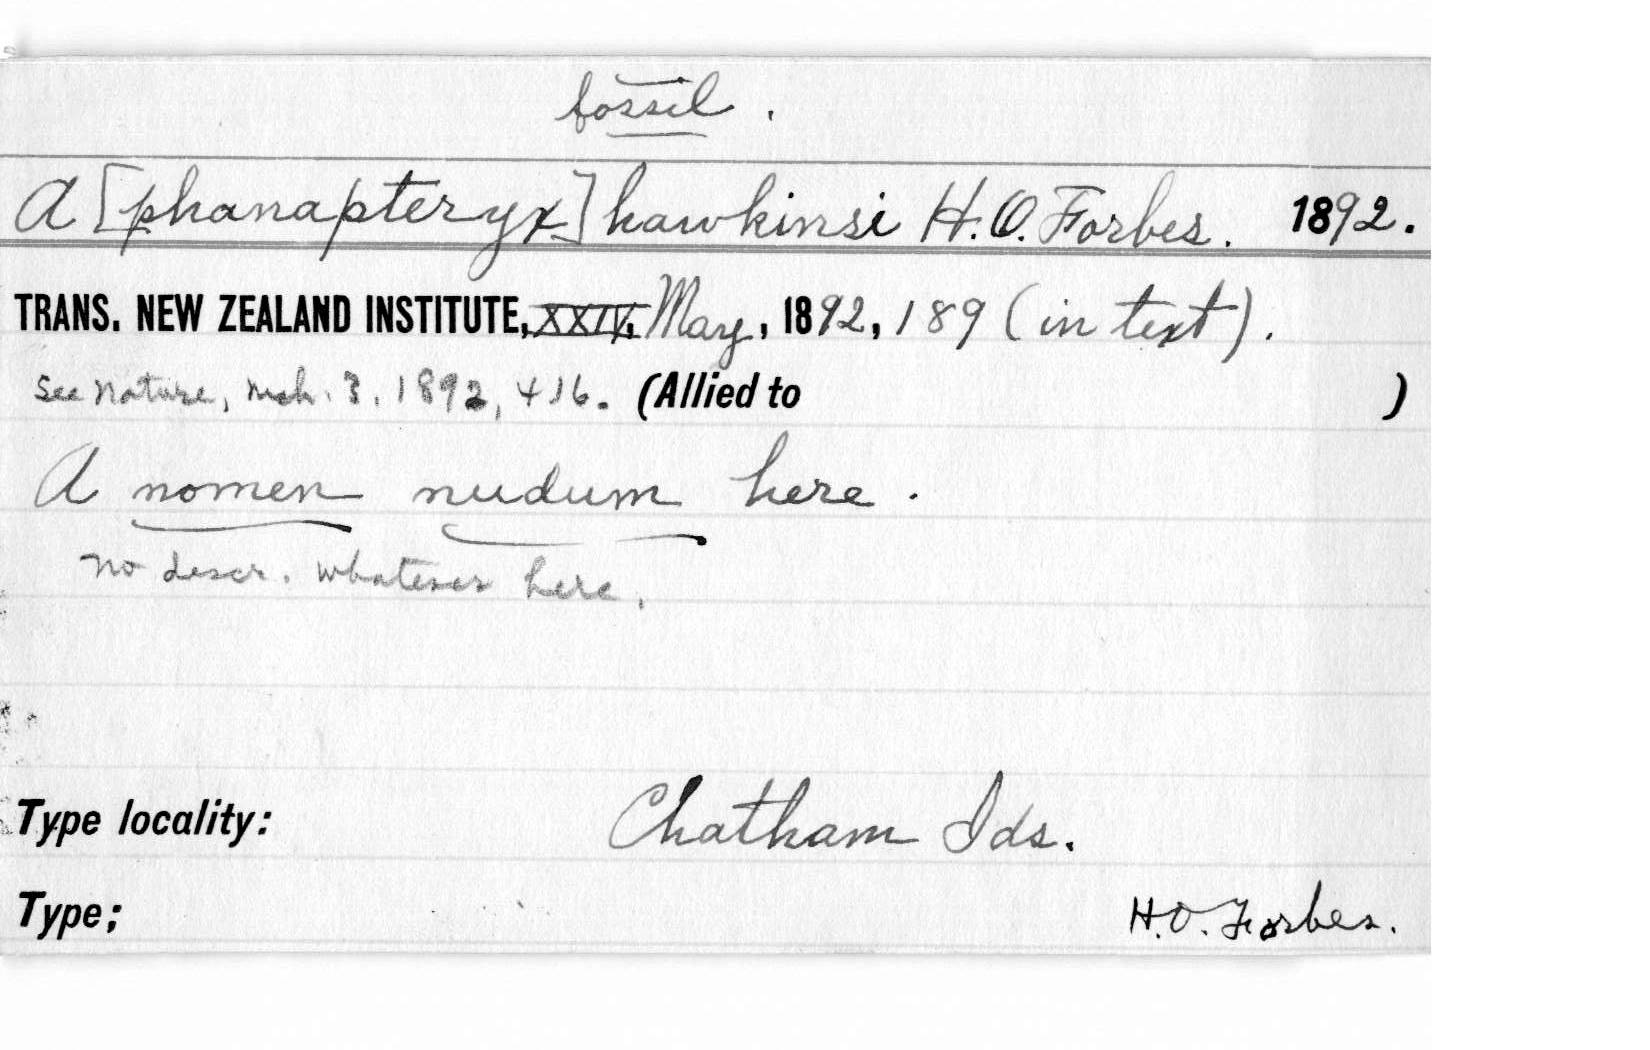 fossil.
A[phanapteryx] hawkinsi H. O. Forbes. 1892.
TRANS. NEW ZEALAND INSTITUTE, XXIV, May, 1892, 189 (in text).
See Nature, Mch. 3, 1892, 416. (Allied to )
A nomen nudum here.
No descr. whatever here.
Type locality: Chatham Ids.
Type; H.O. Forbes.